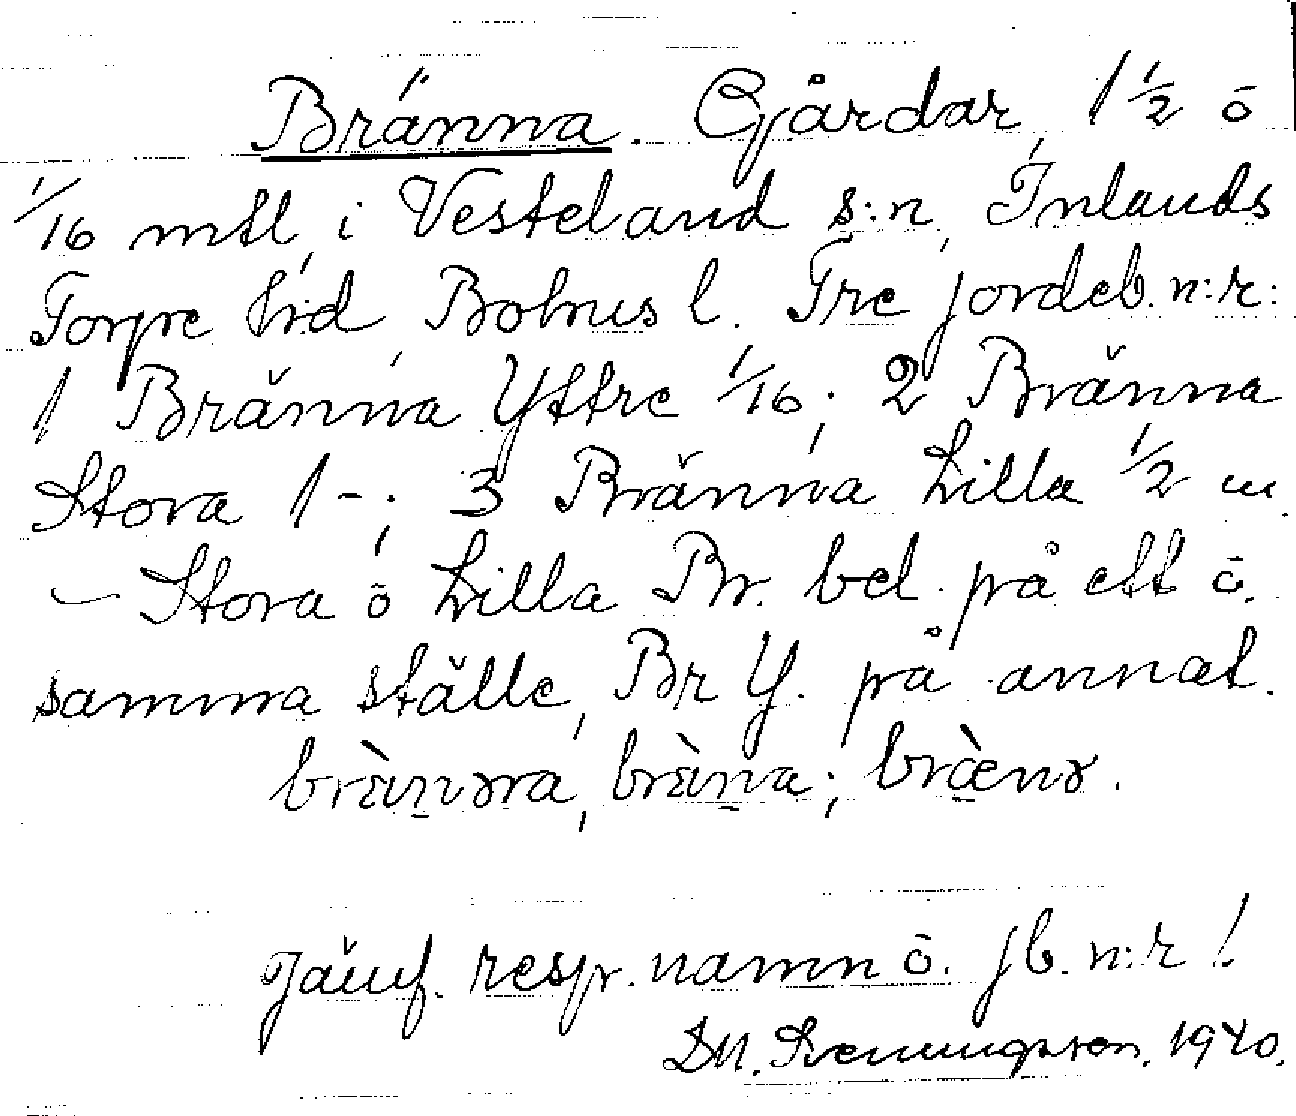 Bränna. Gårdar, 1 1/2 ō
1/16 mtl, i Vesteland s:n, Inlands
Torpe hrd Bohus l. Tre jordeb. n:r:
1 Bränna Yttre 1/16; 2 Bränna
Stora 1 -; 3 Bränna Lilla 1/2 m.
– Stora ō Lilla Br. bel. på ett ō.
samma ställe, Br Y. på annat.
Jämf. resp. namn ō. jb. n:r!
1940.